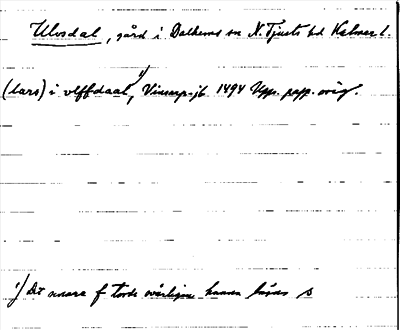 Ulvsdal, gård i Dalhems sn N. Tjusts hd Kalmar l.
(lars) i vlffdaal, 1) Vinsarp-jb 1494 Upp. papp. orig.
1) Det senare f torde möjligen kunna läsas s